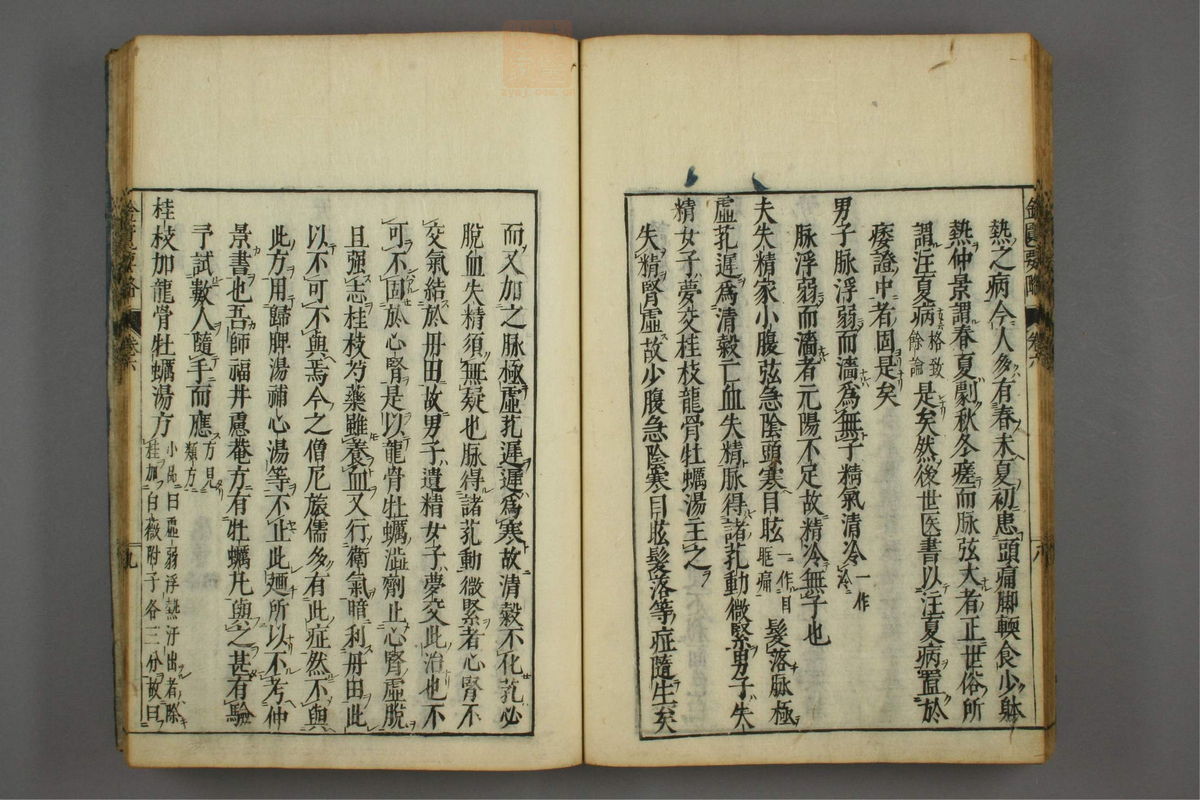 熱之病今人多有春末夏初患頭痛脚軟食少躰
熱仲景謂春夏劇秋冬瘥而脉弦大者正世俗所
謂注夏病格致餘論是矣然後世医書以注夏病置於
痿證中者固是矣
男子脉浮弱而濇為無子精氣清冷一作冷
脉浮弱而濇者元陽不足故精冷無子也
夫失精家小腹弦急陰頭寒目眩一作目眶痛髮落脉極
虛芤遲為清穀亡血失精脉得諸芤動微緊男子失
精女子夢交桂枝龍骨牡蠣湯主之
失精腎虛故少腹急陰寒目眩髮落等症隨生矣
而又加之脉極虛芤遲遲為寒故清穀不化芤必
脫血失精須無疑也脉得諸芤動微緊者心腎不
交氣結於丹田故男子遺精女子夢交此治也不
可不固於心腎是以龍骨牡蠣澁劑止心腎虛脫
且强志桂枝芍藥雖養血又行衛氣暗利丹田此
以不可不與焉今之僧尼旅儒多有此症然不與
此方用歸脾湯補心湯等不止此廼所以不考仲
景書也吾師福井慮菴方有牡蠣丸與之甚有驗
予試數人隨手而應方見類方
桂枝加龍骨牡蠣湯方小品曰虛弱浮熱汗出者除桂加白薇附子各三分故曰
卷六
八
九